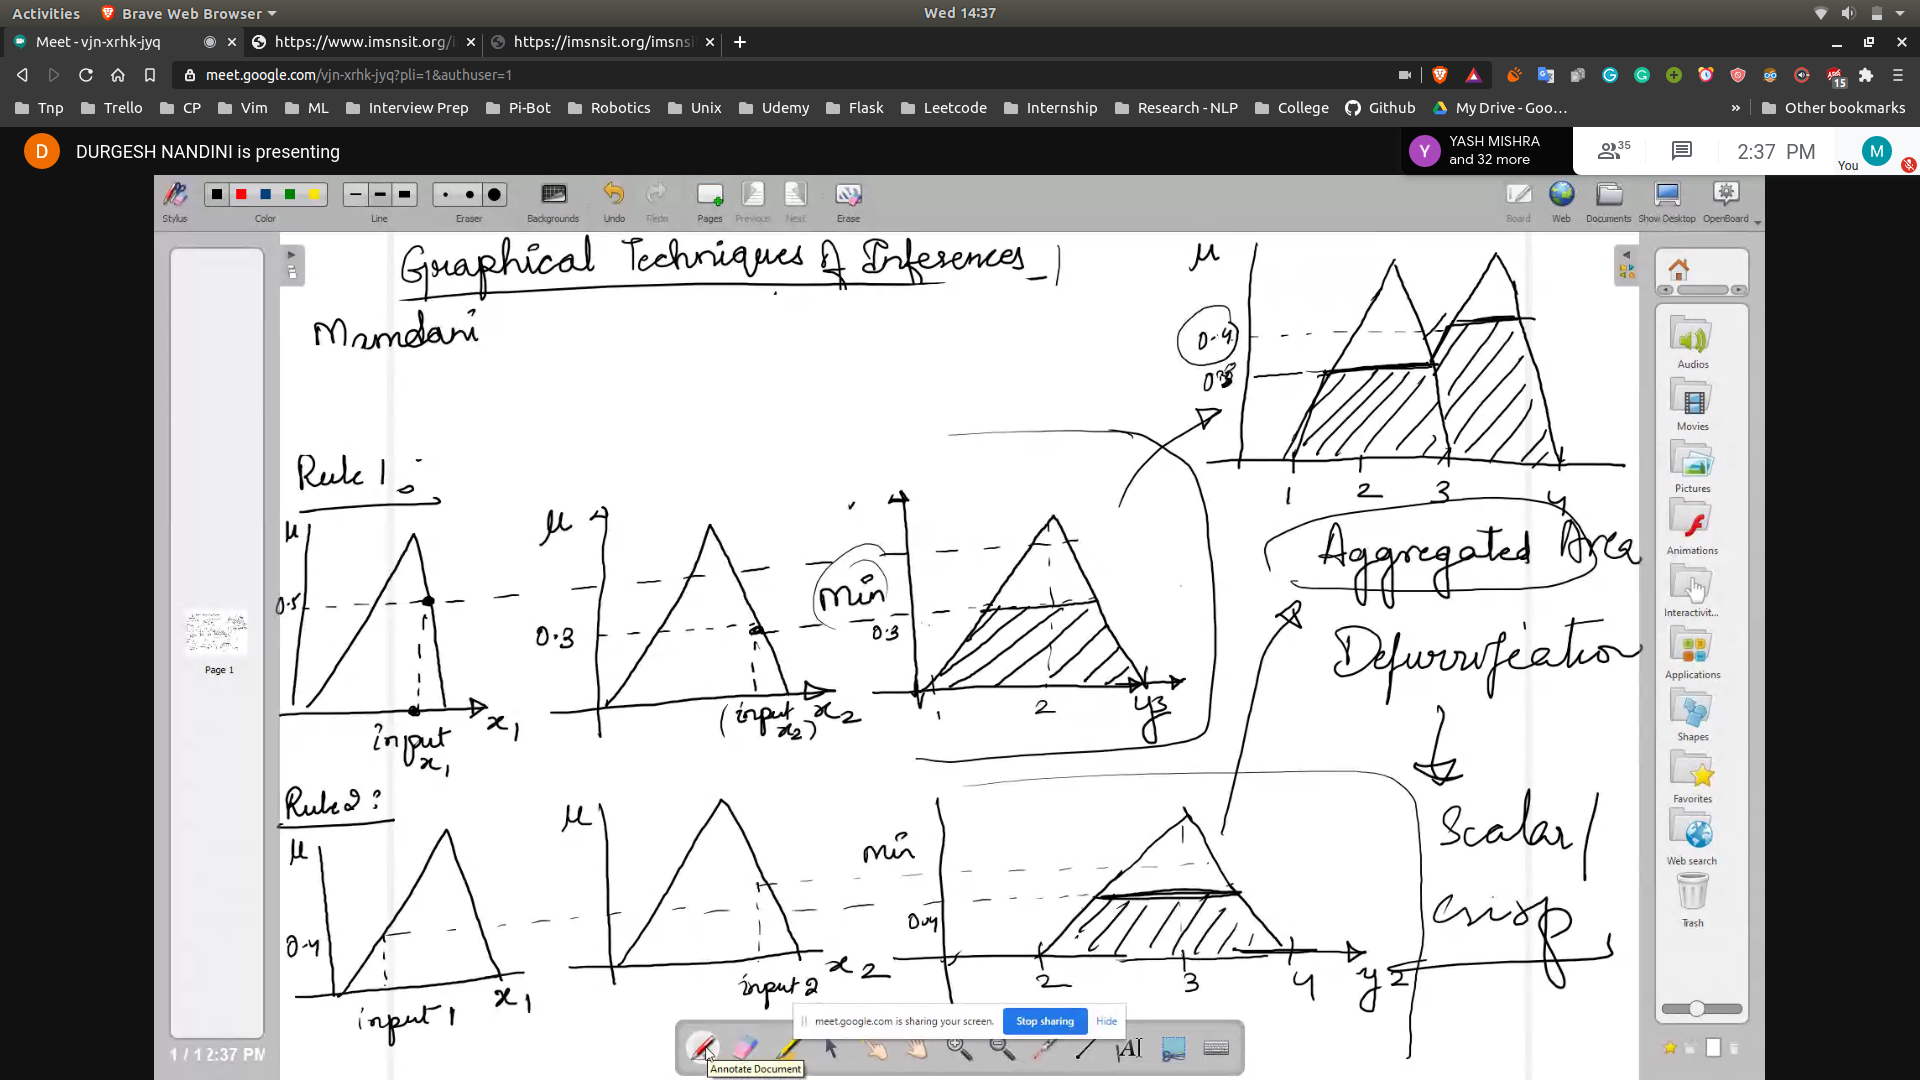 Activities Brave Web Browser Wed 14:37
Meet - vjn-xrhk-jyq https://www.imsnsit.org/i https://imsnsit.org/imsnsi
meet.google.com/vjn-xrhk-jyq?pli=1&authuser=1 15
Tnp Trello CP Vim ML Interview Prep Pi-Bot Robotics Unix Udemy Flask Leetcode Internship Research - NLP College Github My Drive - Goo... » Other bookmarks
D DURGESH NANDINI is presenting
Y YASH MISHRA
and 32 more
35
2:37 PM
You M
Stylus Color Line Eraser Backgrounds Undo Redo Pages Previous Next Erase Board Web Documents Show Desktop OpenBoard
Graphical Techniques of Inferences
Mamdani
μ
0.4
1 2 3 4
Aggregated Area
Defuzzification
Scalar /
crisp
Rule 1:
μ
0.5
input
x1
x1
μ
0.3
(input
x2)
x2
min
0.3
1 2 3
y
Rule 2:
μ
0.4
input 1
x1
μ
input 2
x2
min
0.4
2 3 4
y2
Page 1
1 / 1 2:37 PM
Audios
Movies
Pictures
Animations
Interactivit...
Applications
Shapes
Favorites
Web search
Trash
meet.google.com is sharing your screen. Stop sharing Hide
AI
Annotate Document